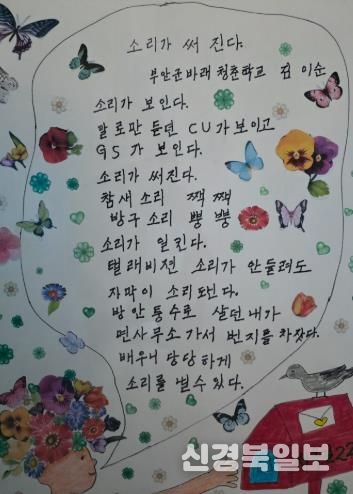 소리가 써 진다.
부안군바래 청춘학교 김 이순
소리가 보인다.
말로만 듣던 CU가 보이고
GS 가 보인다.
소리가 써진다.
참새 소리 짹 짹
방구 소리 뿡 뿡
소리가 일킨다.
텔래비젼 소리가 안들려도
자막이 소리되넌다.
방안퉁수로 살던 내가
면사무소 가서 번지를 차잤다.
배우니 당당하게
소리를 낼수 있다.
신경북일보